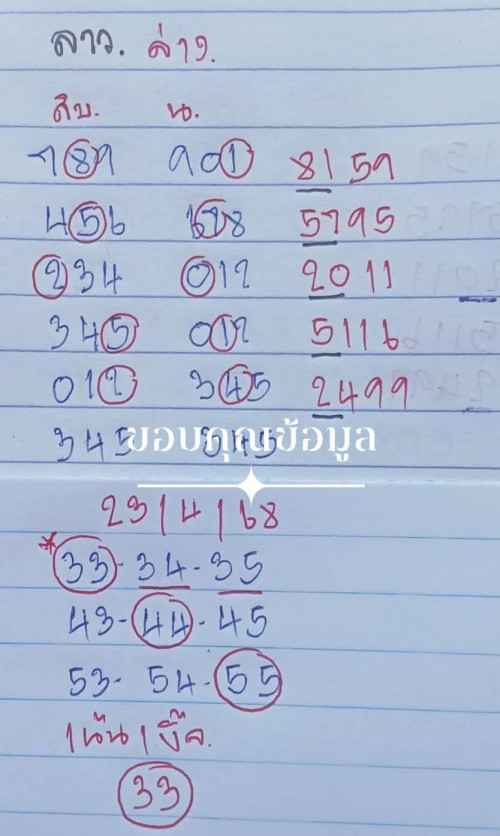 ลาว. ล่าง.
สิบ. น.
789 901 8159
456 678 5795
234 012 2011
345 012 5116
012 345 2499
345 345
ขอบคุณข้อมูล
23/4/68
*33-34-35
43-44-45
53-54-55
1 เน้น 1 เบิ๊ล.
33